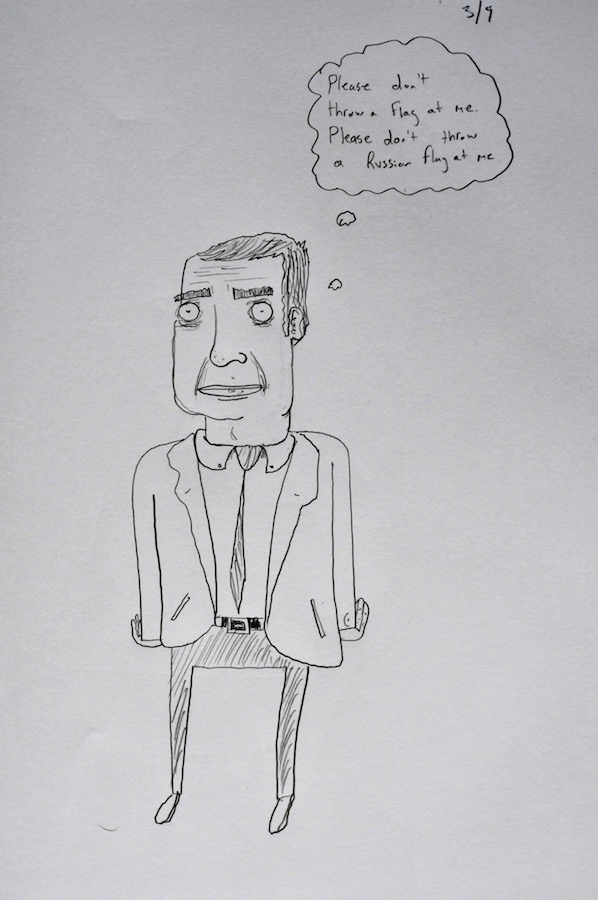 3/9
Please don't
throw a flag at me.
Please don't throw
a Russian flag at me